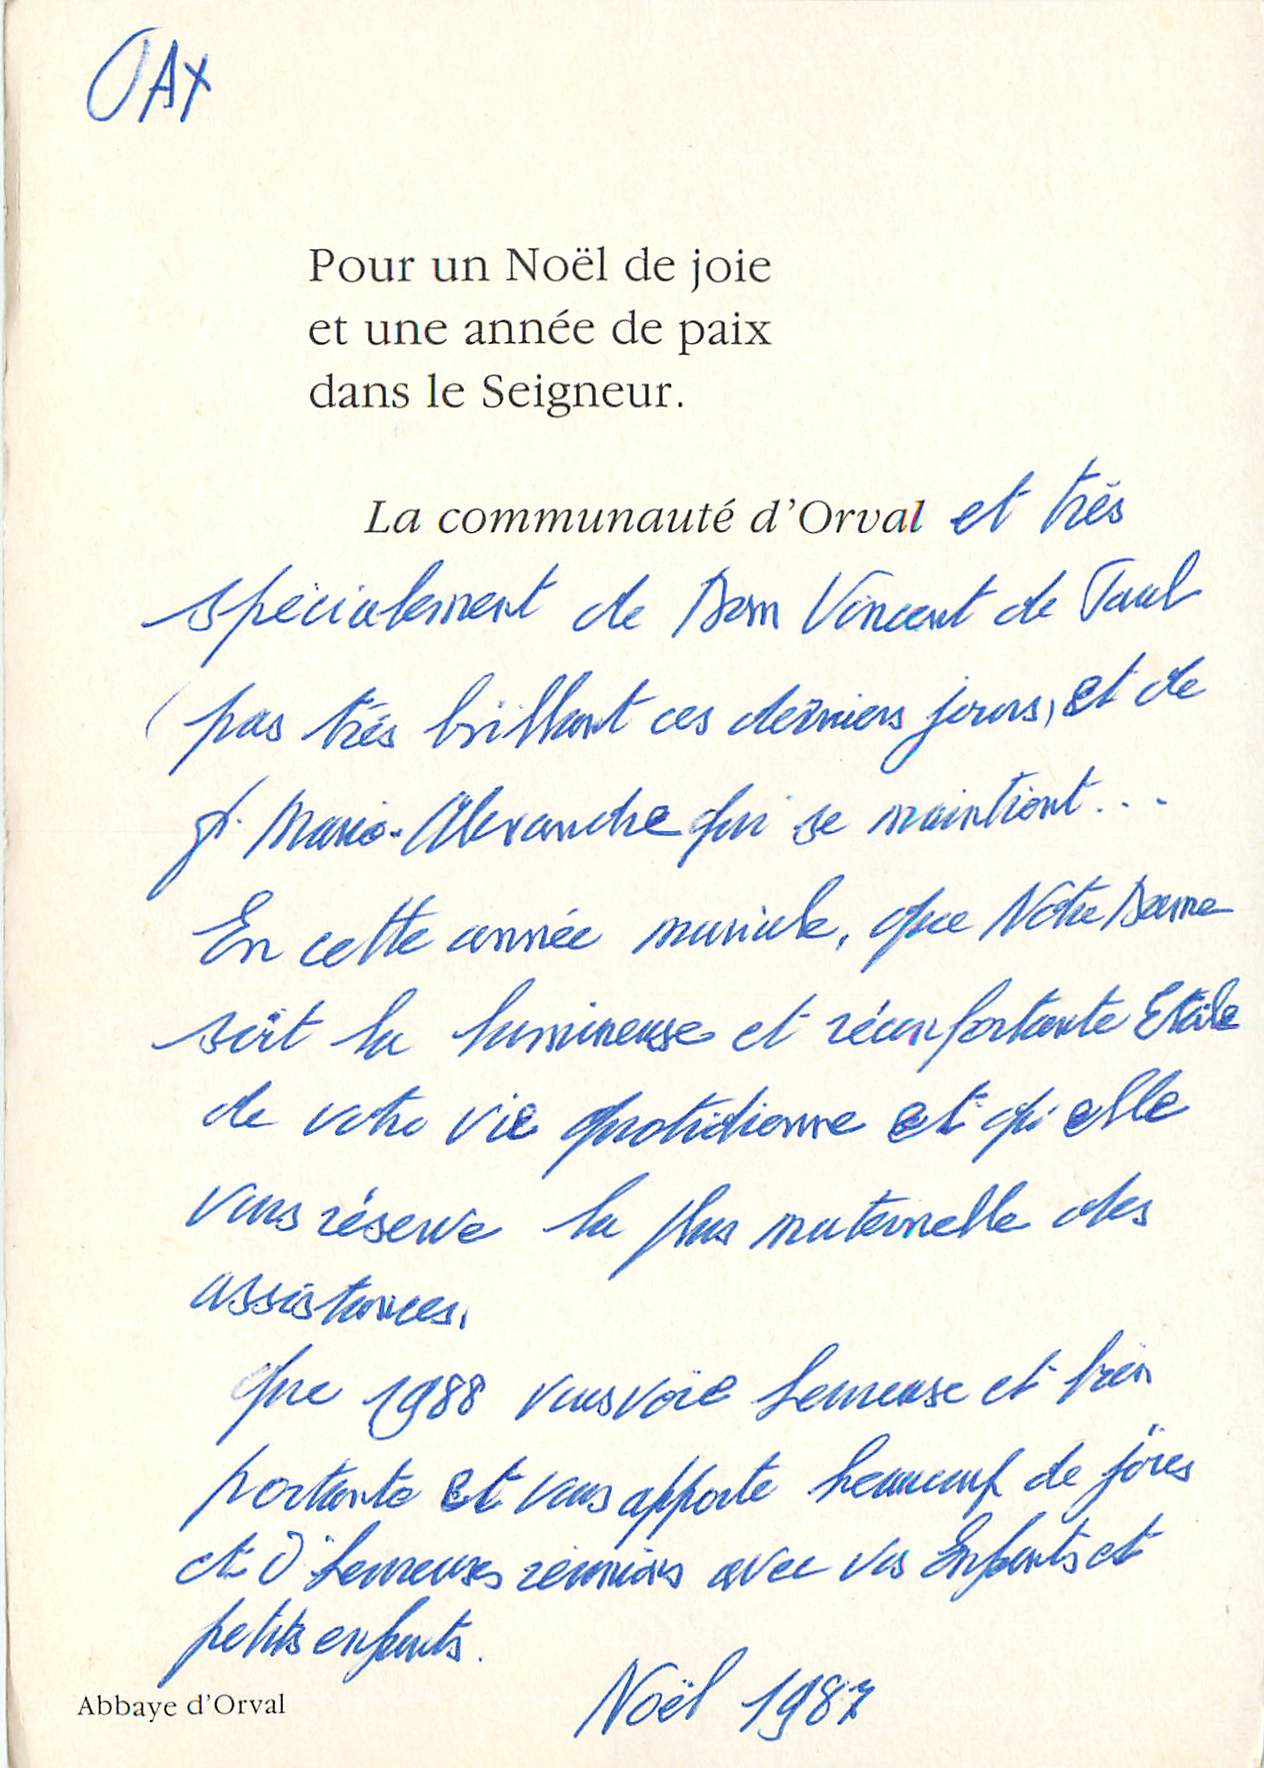 PAX
Pour un Noël de joie
et une année de paix
dans le Seigneur.
La communauté d'Orval et très
spécialement de Dom Vincent de Paul
(pas très brillant ces derniers jours) et de
f. Marie-Alexandre qui se maintient...
En cette année mariale, que Notre Dame
soit la lumineuse et réconfortante Etoile
de votre vie quotidienne et qu'elle
vous réserve la plus maternelle des
assistances.
Que 1988 vous voie heureuse et bien
portante et vous apporte beaucoup de joies
et d'heureuses réunions avec vos Enfants et
petits enfants.
Noël 1987
Abbaye d'Orval